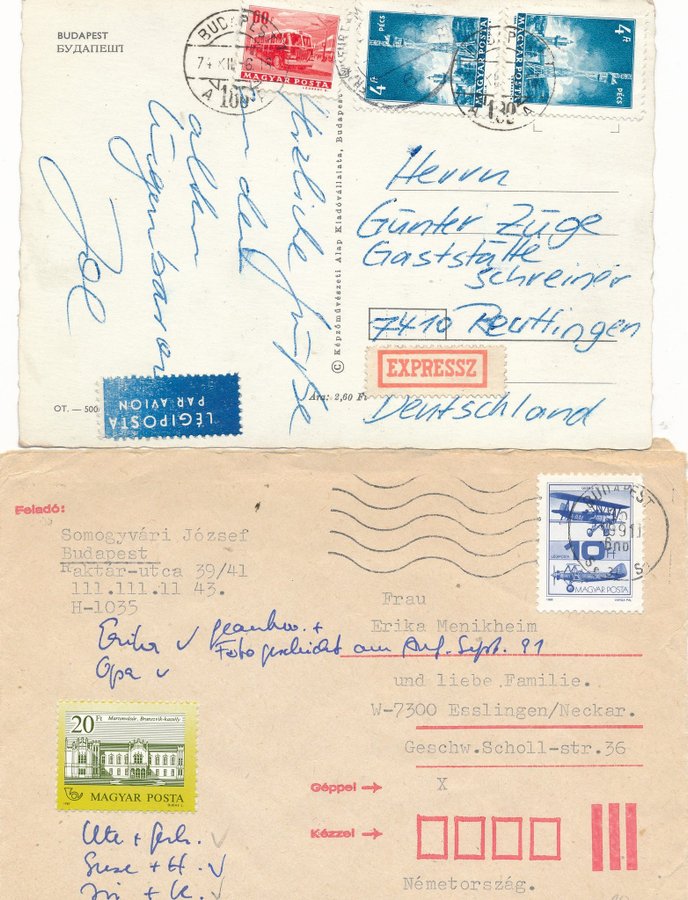 BUDAPEST
БУДАПЕШТ
BUDAPEST
A
60f
MAGYAR POSTA
PÉCS
4 Ft
MAGYAR POSTA
4 Ft
PÉCS
MAGYAR POSTA
Herzliche Grüße
an der
alten
Joe
© Képzőművészeti Alap Kiadóvállalata, Budapest
Herrn
Günter Züge
Gaststätte
Schreiner
7410 Reutlingen
EXPRESSZ
Ára: 2,60 Ft
Deutschland
LÉGIPOSTA
PAR AVION
OT. — 500
Feladó:
Somogyvári József
Budapest
Raktár-utca 39/41
111.111.11 43.
H-1035
BUDAPEST
10
MAGYAR POSTA
Frau
Erika Menikheim
und liebe Familie.
W-7300 Esslingen/Neckar.
Geschw.Scholl-str.36
Erika
Foto geschickt am Anf. Sept. 91
Opa
20 Ft
Martonvásár, Brunszvik-kastély
MAGYAR POSTA
Géppel → X
Kézzel →
Ute +
+ H.
+ K.
Németország.